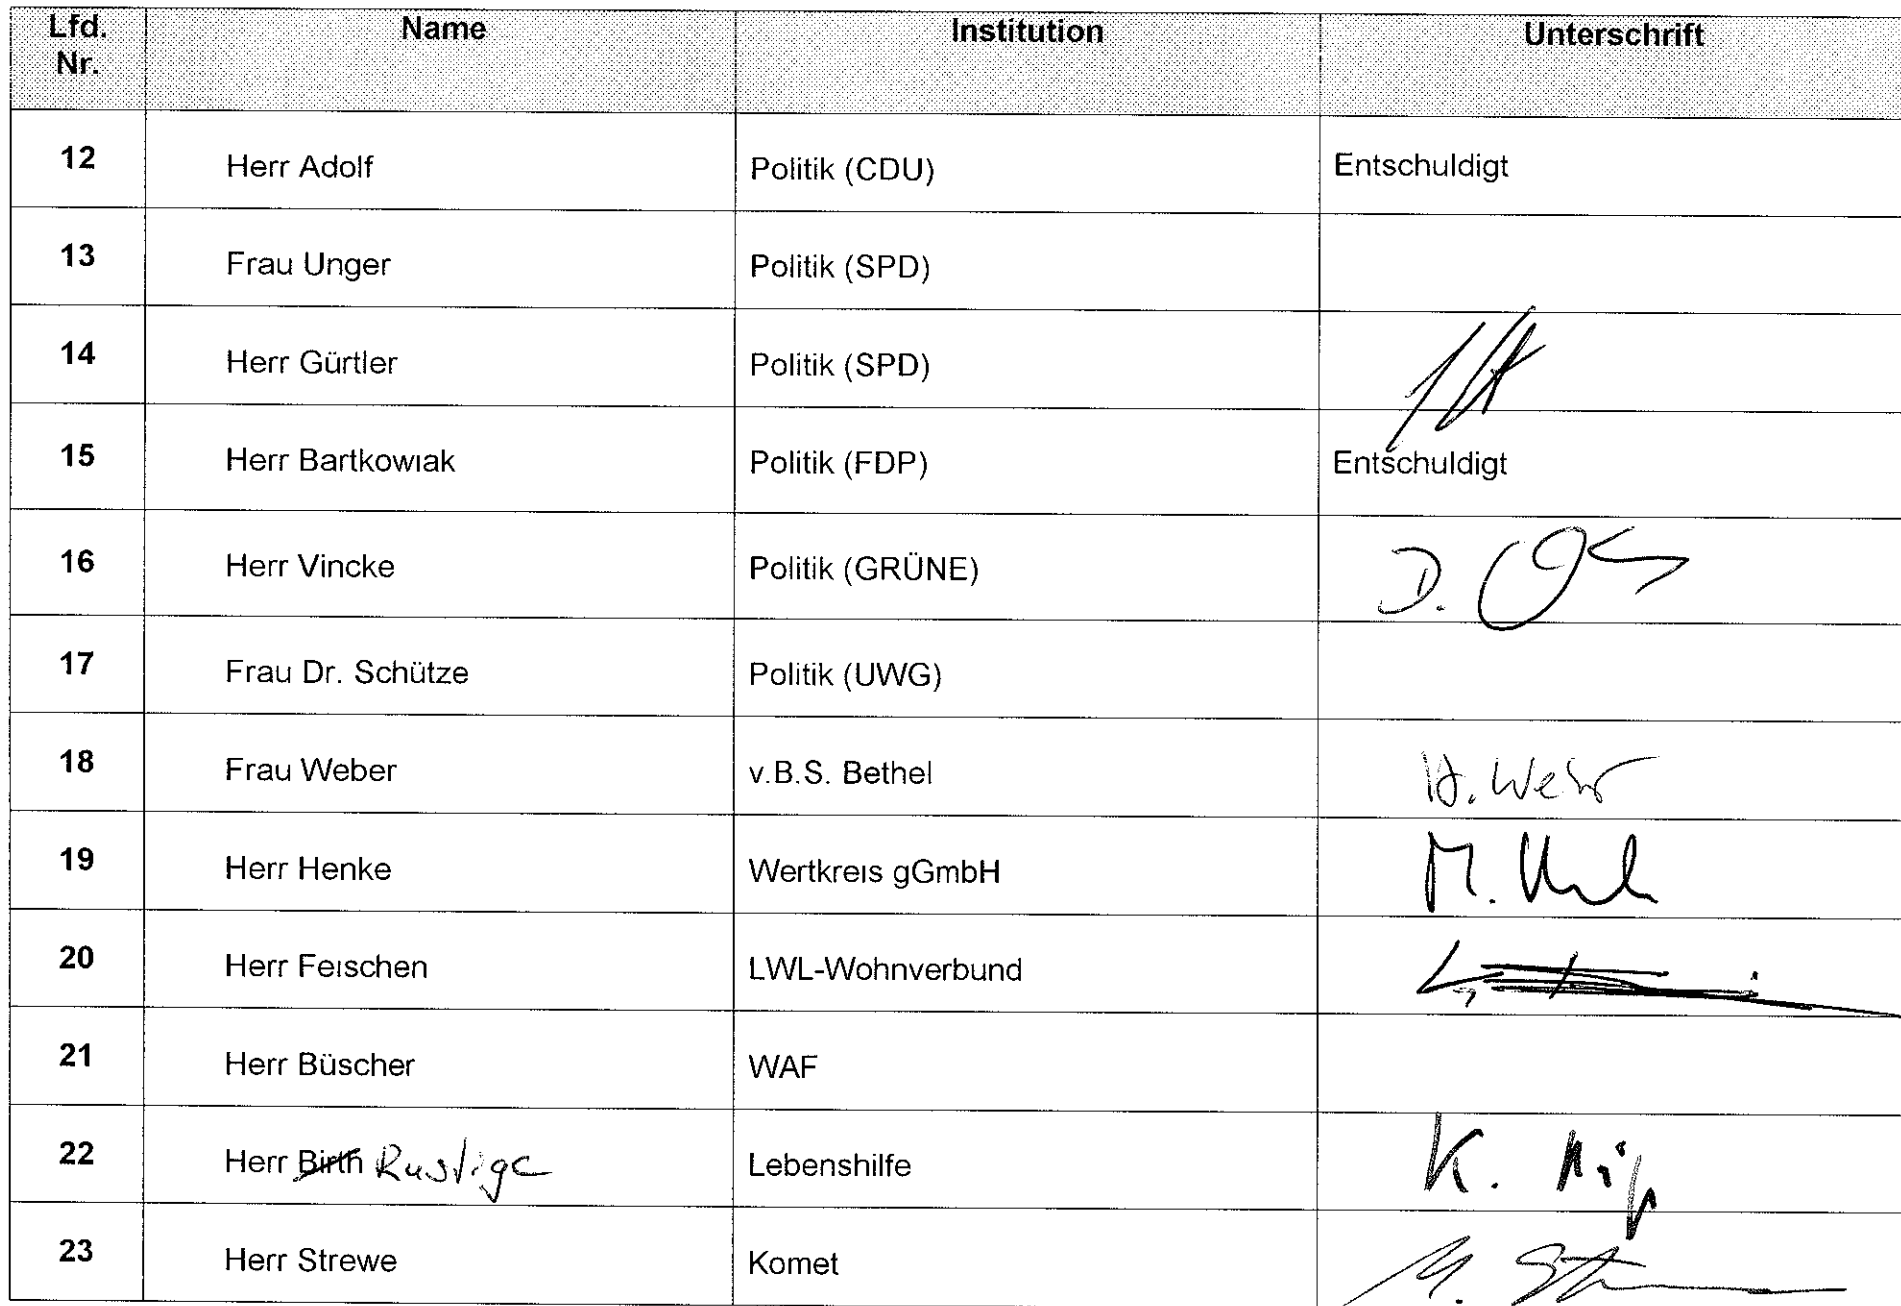 Lfd. Nr. Name Institution Unterschrift
12 Herr Adolf Politik (CDU) Entschuldigt
13 Frau Unger Politik (SPD)
14 Herr Gürtler Politik (SPD)
15 Herr Bartkowiak Politik (FDP) Entschuldigt
16 Herr Vincke Politik (GRÜNE) D.
17 Frau Dr. Schütze Politik (UWG)
18 Frau Weber v.B.S. Bethel H. Weber
19 Herr Henke Wertkreis gGmbH M.
20 Herr Feischen LWL-Wohnverbund
21 Herr Büscher WAF
22 Herr Birth Rustige Lebenshilfe K.
23 Herr Strewe Komet M.